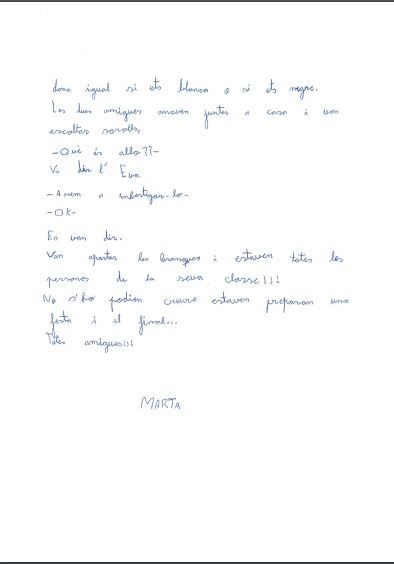 dona igual si ets blanca o si ets negre.
Les dues amigues anaven juntes a casa i van
escoltar sorolls,
-Què és allo??-
Va dir l'Eva.
-Anem a investigar-lo-
-OK-
Es van dir.
Van apartar les branques i estaven totes les
persones de la seva classe!!!
No s'ho podien creure estaven preparan una
festa i al final...
Totes amigues!!!
MARTA